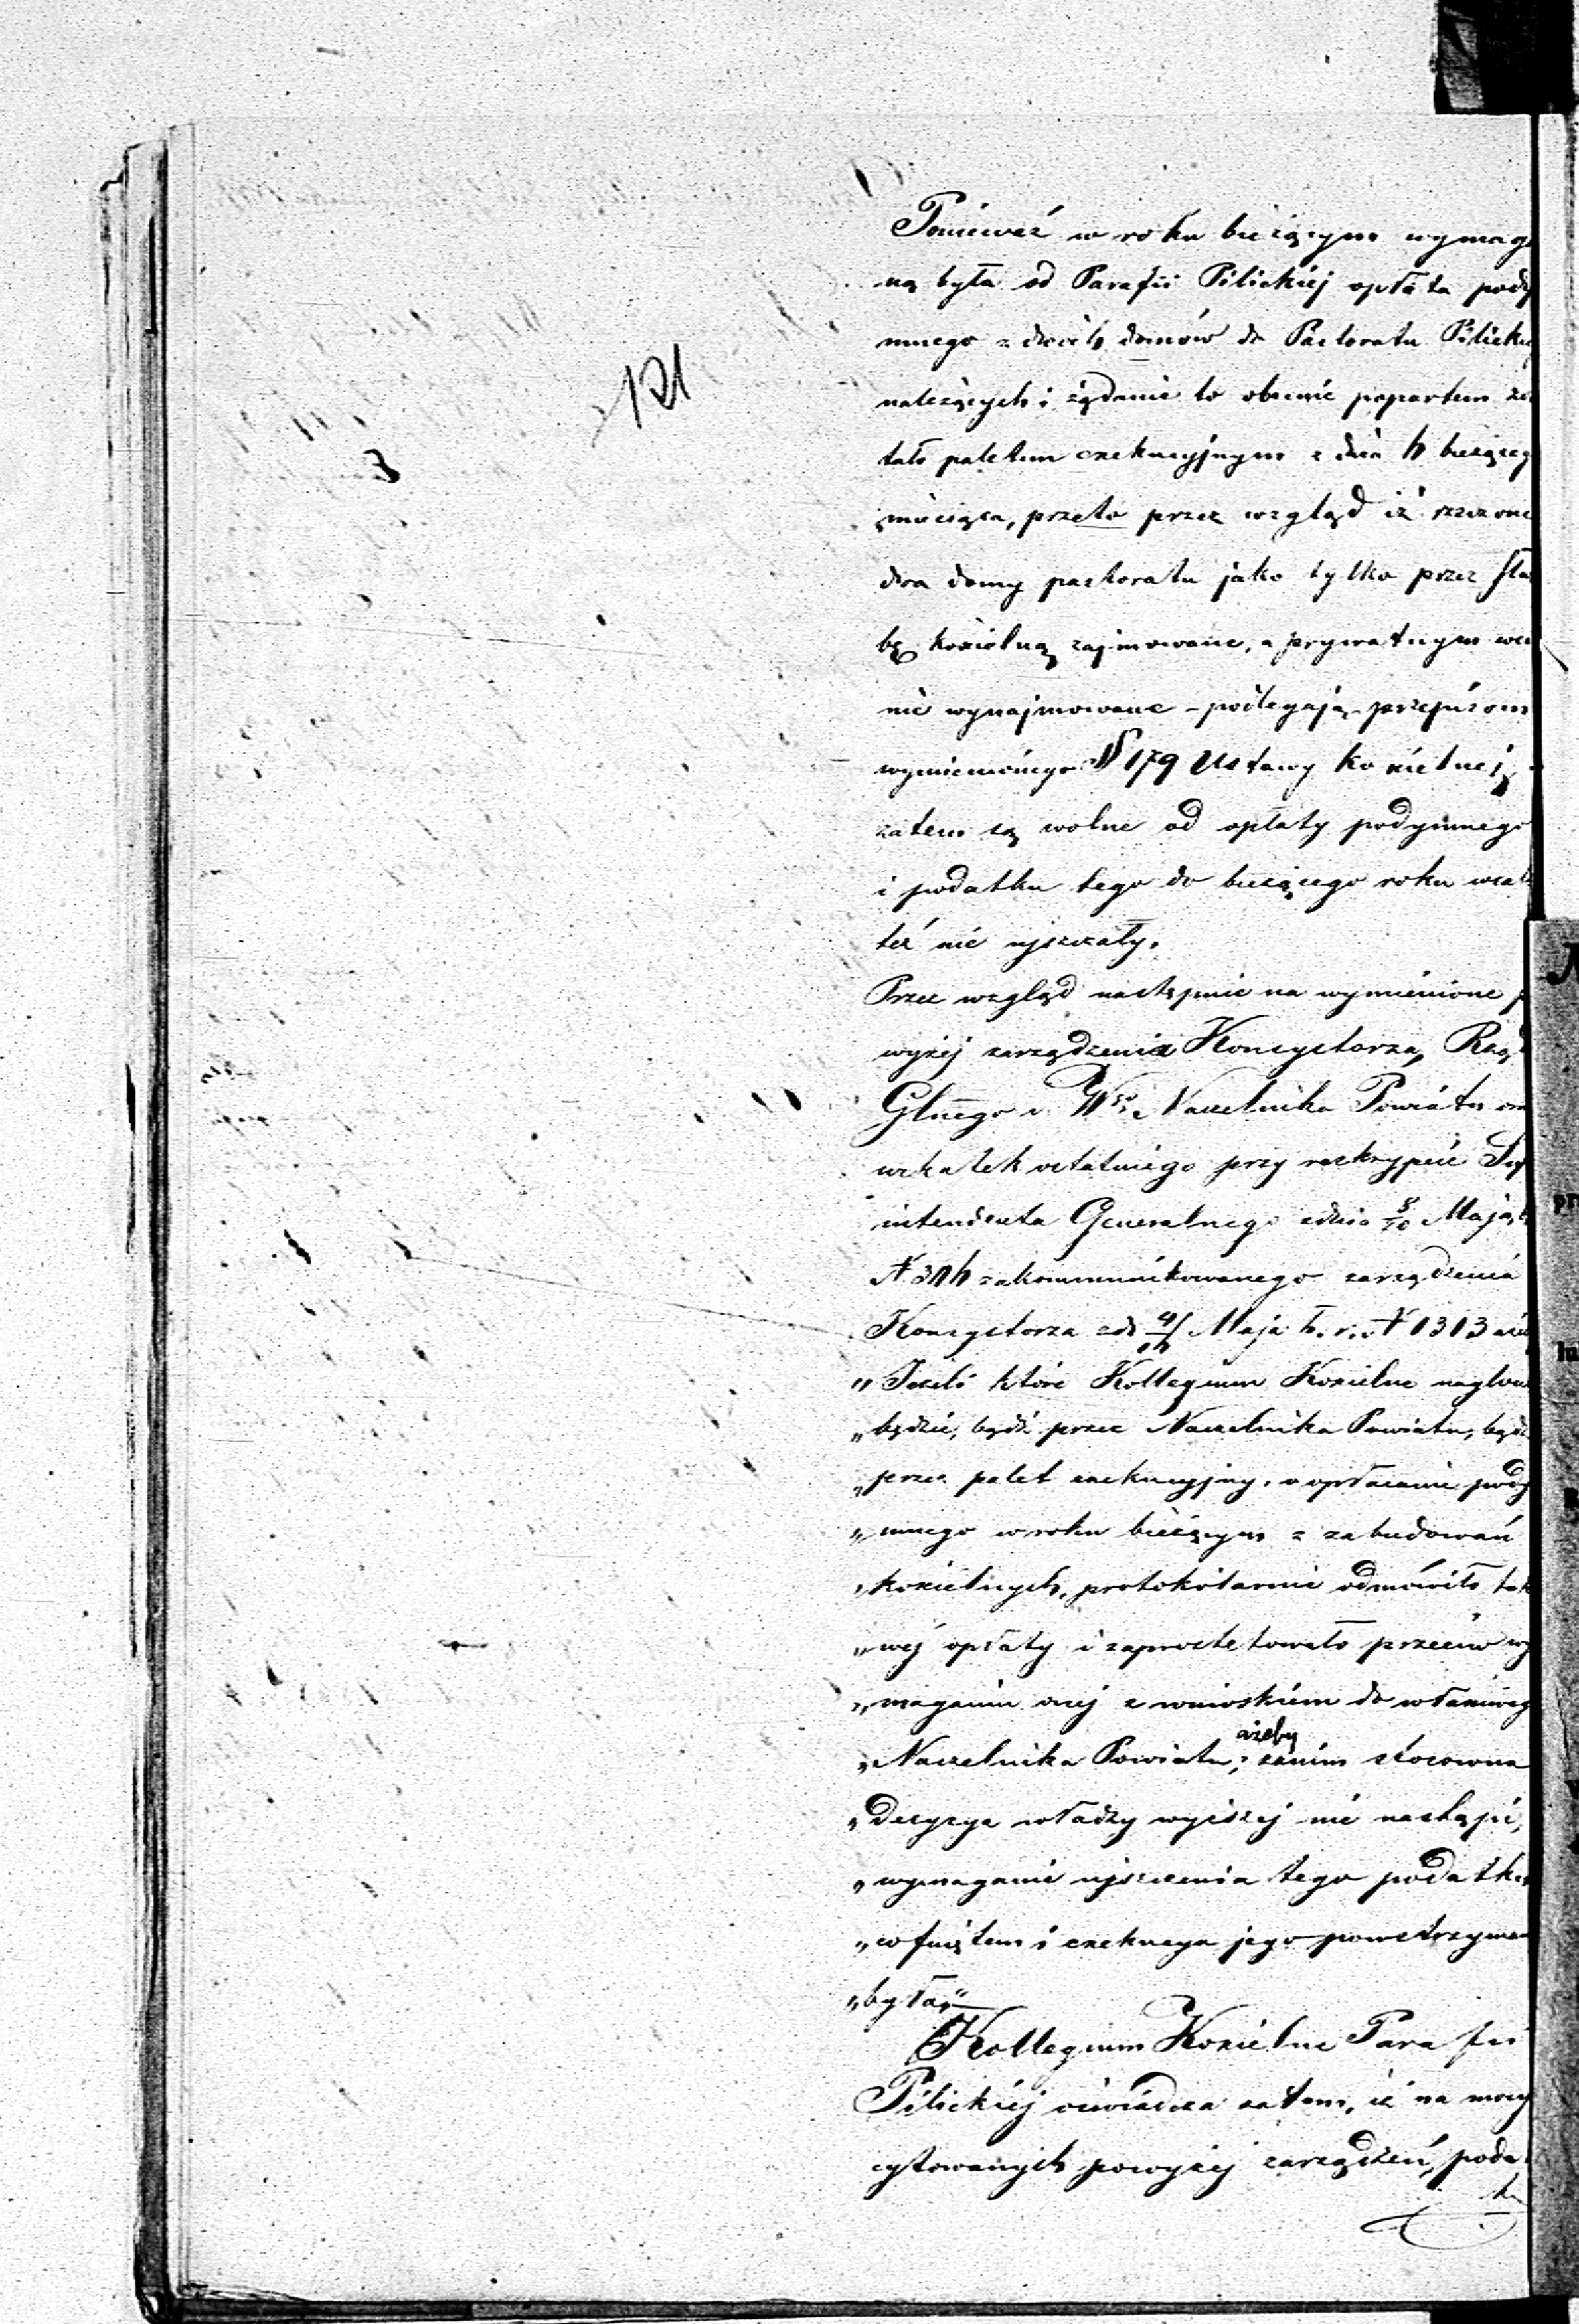 Ponieważ w roku bieżącym wymaga
ną była od Parafii Pilickiej opłata pody
mnego z dwóch domów do Pastoratu Pilickie
należących i żądanie to obecnie popartem zos
tało paletem exekucyjnym z dnia h bieżąceg
miesiąca, przeto przez wzgląd iż rzeczone
dwa domy pastoratu jako tylko przez słu
bę kościelną zajmowane, a prywatnym wca
nie wynajmowane - podlegają przepisom
wymienionego § 179 Ustawy kościelnej
zatem są wolne od opłaty podymnego
i podatku tego do bieżącego roku wcale
też nie ujszczały.
Przez wzgląd następnie na wymienione p
wyżej zarządzenia Konsystorza, Rząd
Głnego i Wgo Naczelnika Powiatu ora
wskutek ostatniego przy reskrypcie Sup
intendenta Generalnego z dnia 8/20 Maja b
N 314 zakommunikowanego zarządzenia
Konsystorza z d. 4/16 Maja b. r. N 1313 aże
„Jeżeli które Kollegium Kościelne naglone
„będzie, bądź przez Naczelnika Powiatu, bądź
„przez palet exekucyjny, o opłacanie pody
„mnego w roku bieżącym z zabudowań
„kościelnych, protokólarnie odmówiło tako
„wej opłaty i zaprotestowało przeciw wy
„maganiu onej z wnioskiem do właściweg
ażeby
„Naczelnika Powiatu, zanim stosowna
„decyzya władzy wyższej nie nastąpi,
„wymaganie ujszczenia tego podatku
„cofniętem i exekucya jego powstrzyman
„była"
Kollegium Kościelne Parafii
Pilickiej oświadcza zatem, iż na mocy
cytowanych powyżej zarządzeń, poda
tku
121
3